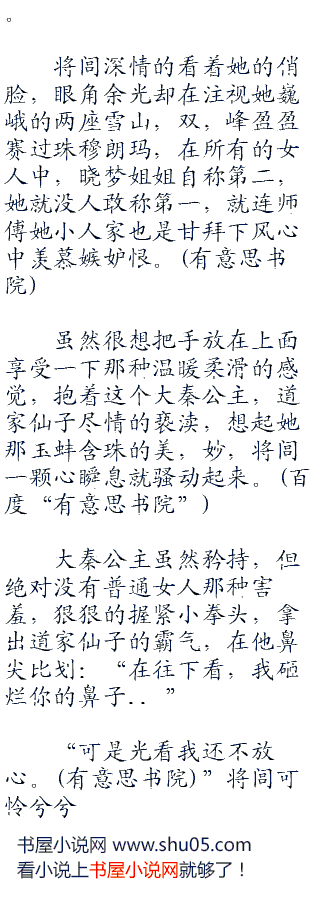 。
将闾深情的看着她的俏
脸，眼角余光却在注视她巍
峨的两座雪山，双，峰盈盈
赛过珠穆朗玛，在所有的女
人中，晓梦姐姐自称第二，
她就没人敢称第一，就连师
傅她小人家也是甘拜下风心
中羡慕嫉妒恨。(有意思书
院)
虽然很想把手放在上面
享受一下那种温暖柔滑的感
觉，抱着这个大秦公主，道
家仙子尽情的亵渎，想起她
那玉蚌含珠的美，妙，将闾
一颗心瞬息就骚动起来。(百
度“有意思书院”)
大秦公主虽然矜持，但
绝对没有普通女人那种害
羞，狠狠的握紧小拳头，拿
出道家仙子的霸气，在他鼻
尖比划：“在往下看，我砸
烂你的鼻子..”
“可是光看我还不放
心。(有意思书院)”将闾可
怜兮兮
书屋小说网 www.shu05.com
看小说上书屋小说网就够了！